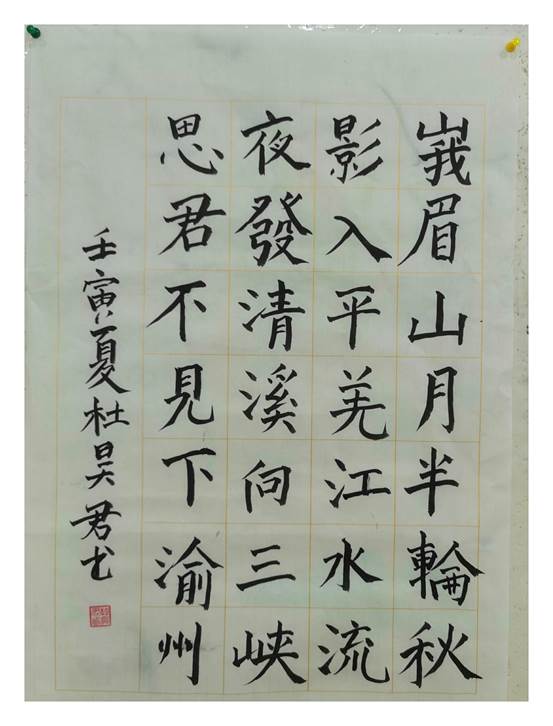 峩眉山月半輪秋
影入平羌江水流
夜發清溪向三峽
思君不見下渝州
壬寅夏杜昊君书